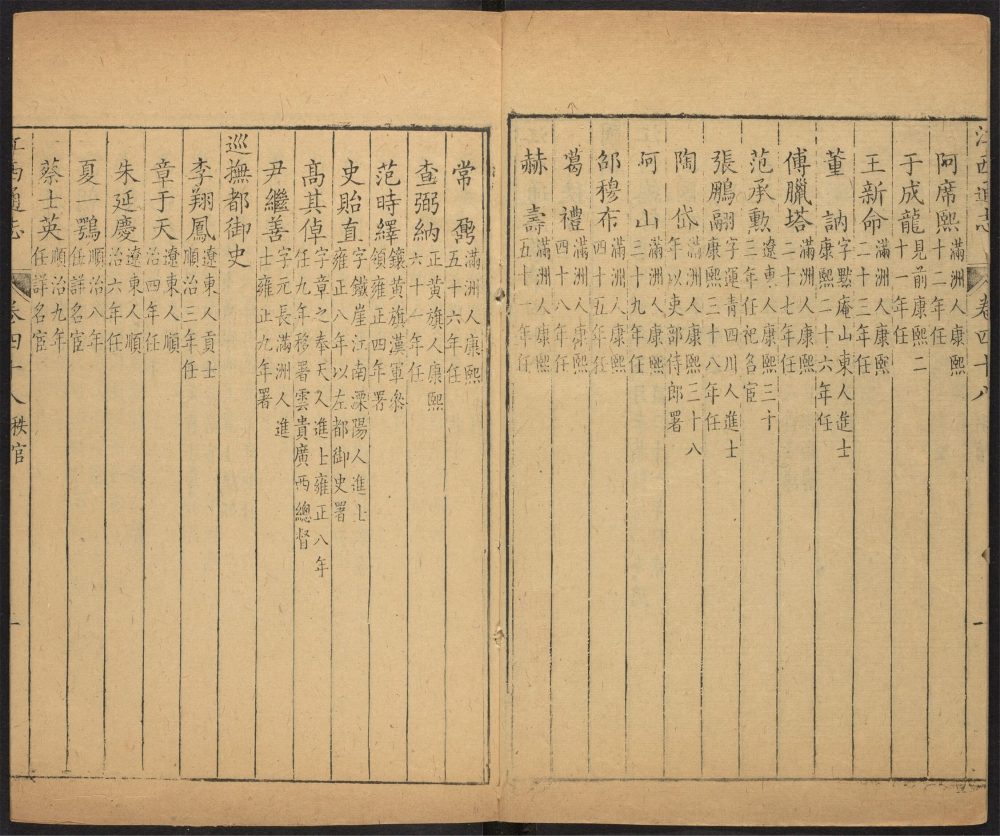 江西通志 卷四十八 一
阿席熙 滿洲人康熙十二年任
于成龍 見前康熙二十一年任
王新命 滿洲人康熙二十三年任
董訥 字默庵山東人進士康熙二十六年任
傅臘塔 滿洲人康熙二十七年任
范承勳 遼東人康熙三十三年任祀名宦
張鵬翮 字運青四川人進士康熙三十八年任
陶岱 滿洲人康熙三十八年以吏部侍郎署
阿山 滿洲人康熙三十九年任
邵穆布 滿洲人康熙四十五年任
葛禮 滿洲人康熙四十八年任
赫壽 滿洲人康熙五十一年任
常鼐 滿洲人康熙五十六年任
查弼納 正黃旗人康熙六十一年任
范時繹 鑲黃旗漢軍叅領雍正四年署
史貽直 字鐵崖江南溧陽人進士雍正八年以左都御史署
高其倬 字章之奉天人進士雍正八年任九年移署雲貴廣西總督
尹繼善 字元長滿洲人進士雍正九年署
巡撫都御史
李翔鳳 遼東人貢士順治三年任
章于天 遼東人順治四年任
朱延慶 遼東人順治六年任
夏一鶚 順治八年任詳名宦
蔡士英 順治九年任詳名宦
江西通志 卷四十八 秩官 一